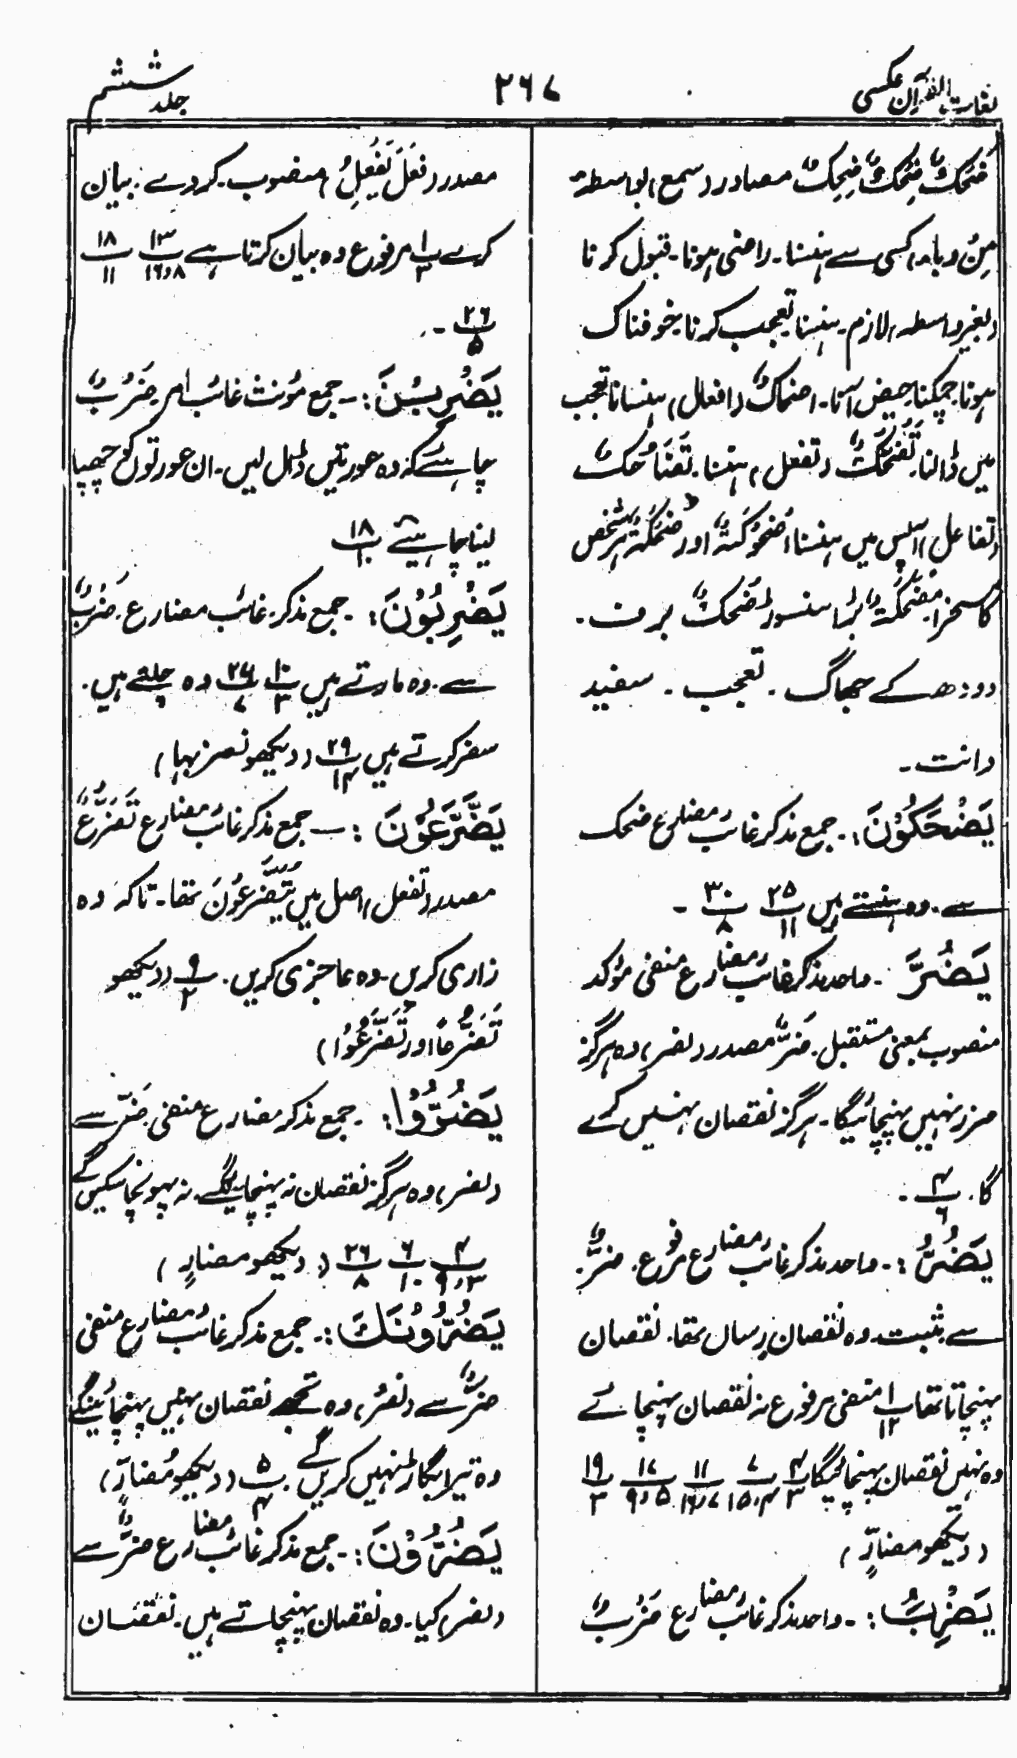 لغات القرآن عکسی
۲۶۷
جلد ششم
ضَحْکٌ ضِحْکٌ ضِحِکٌ مصادر (سمع) بواسطہ
مِنْ و باء، کسی سے ہنسنا۔ راضی ہونا۔ قبول کرنا
(بغیر واسطہ) لازم۔ ہنسنا تعجب کرنا۔ خوفناک
ہونا، چمکنا، حیض آنا۔ اضحاکٌ (افعال) ہنسانا تعجب
میں ڈالنا۔ تَضَحُّکٌ (تفعل) ہنسنا۔ تَضَاحُکٌ
(تفاعل) آپس میں ہنسنا اُضْحُوْکَۃٌ اور ضُحْکَۃٌ ہر شخص
کا مسخرا۔ ضُحَکَۃٌ بڑا ہنسوڑ ضَحْکٌ برف۔
دودھ کے جھاگ۔ تعجب۔ سفید
دانت۔
یَضْحَکُوْنَ:۔ جمع مذکر غائب مضارع ضحک
سے۔ وہ ہنستے ہیں ۲۵/۱۱ ۳۰/۸ ۔
یَضُرَّ ۔ واحد مذکر غائب مضارع منفی مؤکد
منصوب بمعنی مستقبل۔ ضَرٌّ مصدر (نصر) وہ ہرگز
ضرر نہیں پہنچائیگا۔ ہرگز نقصان نہیں کرے
گا۔ ۴/۶ ۔
یَضُرُّ:۔ واحد مذکر غائب مضارع مرفوع۔ ضرٌّ۔
سے مثبت۔ وہ نقصان رساں تھا۔ نقصان
پہنچاتا تھا ۱/۱۲ منفی مرفوع نہ نقصان پہنچائے
وہ نہیں نقصان پہنچائیگا ۴/۳ ۷/۱۵،۴ ۱۱/۱۶،۷ ۱۷/۹،۵ ۱۹/۳
(دیکھو مضارٍّ)
یَضْرِبُ:۔ واحد مذکر غائب مضارع ضَرْبٌ
مصدر (فَعَلَ یَفْعِلُ) منصوب۔ کر دے۔ بیان
کرے ۱/۳ مرفوع وہ بیان کرتا ہے ۱۳/۱۶،۸ ۱۸/۱۱
۲۶/۵ ۔
یَضْرِبْنَ:۔ جمع مؤنث غائب امر ضَرْبٌ
چاہئے کہ وہ عورتیں ڈال لیں۔ ان عورتوں کو چھپا
لینا چاہیئے ۱۸/۱۰
یَضْرِبُوْنَ:۔ جمع مذکر غائب مضارع۔ ضَرْبٌ
سے۔ وہ مارتے ہیں ۱۰/۳ ۲۶/۷ وہ چلتے ہیں۔
سفر کرتے ہیں ۲۹/۱۴ (دیکھو نضربہا)
یَضَّرَّعُوْنَ:۔ جمع مذکر غائب مضارع تَضَرُّعٌ
مصدر (تفعل) اصل میں یَتَضَرَّعُوْنَ تھا۔ تاکہ وہ
زاری کریں۔ وہ عاجزی کریں۔ ۹/۲ (دیکھو
تَضَرُّعًا اور تَضَرَّعُوْا)
یَضُرُّوْا:۔ جمع مذکر مضارع منفی ضَرٌّ سے
(نصر) وہ ہرگز نقصان نہ پہنچائیں گے۔ نہ پہونچا سکیں گے
۴/۹،۳ ۶/۱۰ ۲۶/۸ (دیکھو مضارٍّ)
یَضُرُّوْنَکَ:۔ جمع مذکر غائب مضارع منفی
ضرٌّ سے (نصر) وہ تجھے نقصان نہیں پہنچائینگے
وہ تیرا بگاڑ نہیں کریں گے ۵/۴ (دیکھو مُضَارٍّ)
یَضُرُّوْنَ:۔ جمع مذکر غائب مضارع ضرٌّ سے
(نصر) کیا۔ وہ نقصان پہنچاتے ہیں۔ نقصان